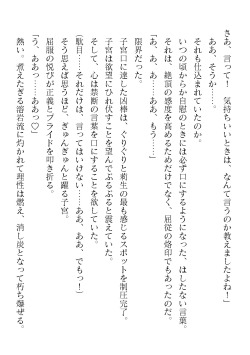 さあ、言って！　気持ちいいときは、なんて言うのか教えましたよね！」
ああっ、そうか……。
それも仕込まれていたのか。
いつの頃からか自慰のときには必ず口にするようになった、はしたない言葉。
それは、絶頂の感度を高めるためだけでなく、屈従の烙印でもあったのだ。
「あっ、あ、……ああ、もう……」
限界だった。
子宮口に達した凶棒は、ぐりぐりと の最も感じるスポットを制圧完了。
子宮は欲望にひれ伏すことを望んでぶるぶると震えていた。
そして、心は禁断の言葉を口にすることを欲していた。
（駄目……それだけは、言ってはいけない……ああ、ああ、でもっ！）
そう思えば思うほど、ぎゅんぎゅんと躍る子宮。
屈服の悦びが正義とプライドを叩き折る。
「う、ああっ……ああっっ♡」
熱い。煮えたぎる溶岩流に灼かれて理性は燃え、消し炭となって朽ち爆ぜる。